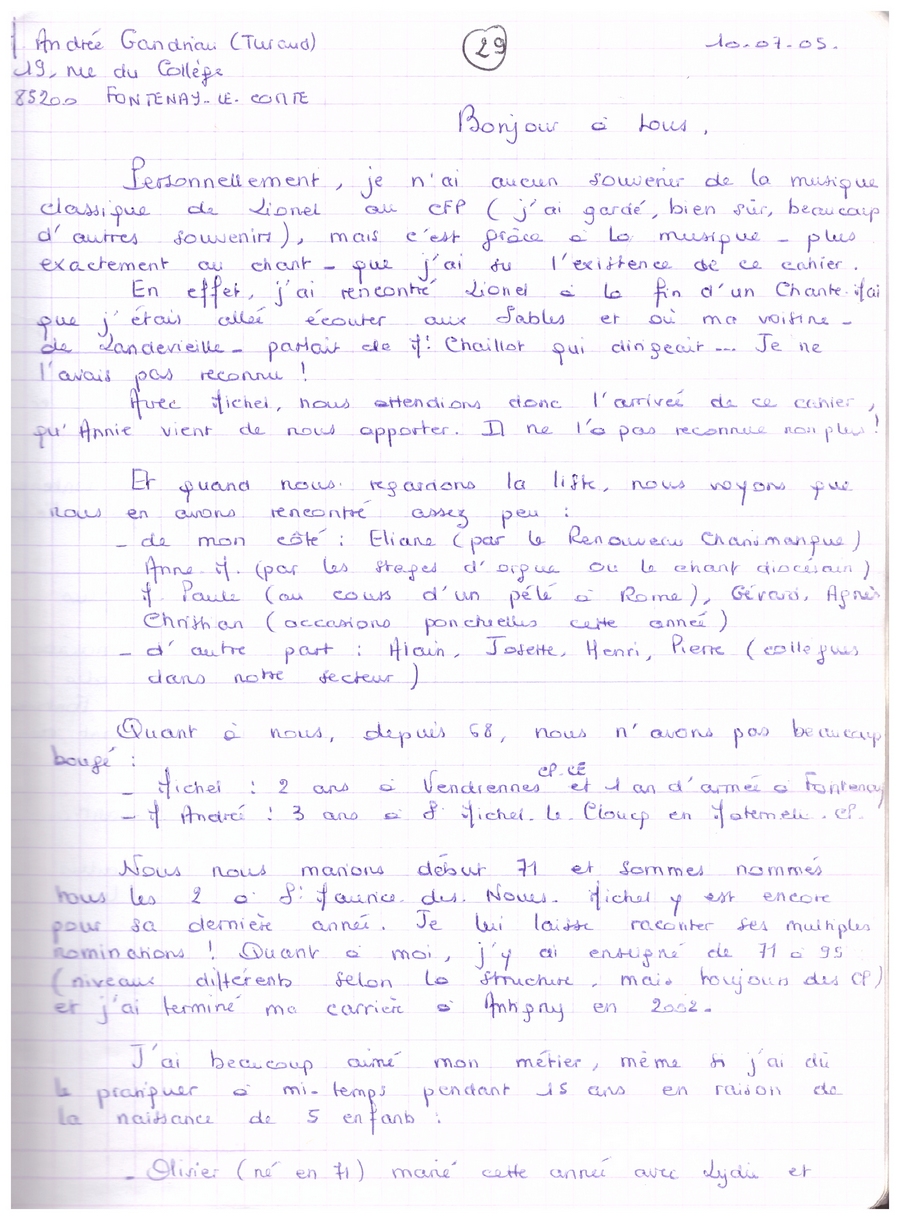 Andrée Gandriau (Turaud)
29
10.07.05.
19, rue du Collège
85200 FONTENAY-LE-COMTE
Bonjour à tous,
Personnellement, je n'ai aucun souvenir de la musique
classique de Lionel au CFP (j'ai gardé, bien sûr, beaucoup
d'autres souvenirs), mais c'est grâce à la musique - plus
exactement au chant - que j'ai su l'existence de ce cahier.
En effet, j'ai rencontré Lionel à la fin d'un Chante-Mai
que j'étais allée écouter aux Sables et où ma voisine -
de Landevieille - parlait de Mr Chaillot qui dirigeait... Je ne
l'avais pas reconnu !
Avec Michel, nous attendions donc l'arrivée de ce cahier,
qu'Annie vient de nous apporter. Il ne l'a pas reconnue non plus !
Et quand nous regardons la liste, nous voyons que
nous en avons rencontré assez peu :
- de mon côté : Eliane (par le Renouveau Charismatique)
Anne M. (par les stages d'orgue ou le chant diocésain)
M. Paule (au cours d'un pélé à Rome), Gérard, Agnès
Christian (occasions ponctuelles cette année)
- d'autre part : Alain, Josette, Henri, Pierre (collègues
dans notre secteur)
Quant à nous, depuis 68, nous n'avons pas beaucoup
bougé :
- Michel : 2 ans à Vendrennes CP.CE et 1 an d'armée à Fontenay
- M Andrée : 3 ans à St Michel-le-Cloucq en Maternelle.CP.
Nous nous marions début 71 et sommes nommés
tous les 2 à St Maurice-des-Noues. Michel y est encore
pour sa dernière année. Je lui laisse raconter ses multiples
nominations ! Quant à moi, j'y ai enseigné de 71 à 95
(niveaux différents selon la structure, mais toujours des CP)
et j'ai terminé ma carrière à Antigny en 2002.
J'ai beaucoup aimé mon métier, même si j'ai dû
le pratiquer à mi-temps pendant 15 ans en raison de
la naissance de 5 enfants :
- Olivier (né en 71) marié cette année avec Lydie et